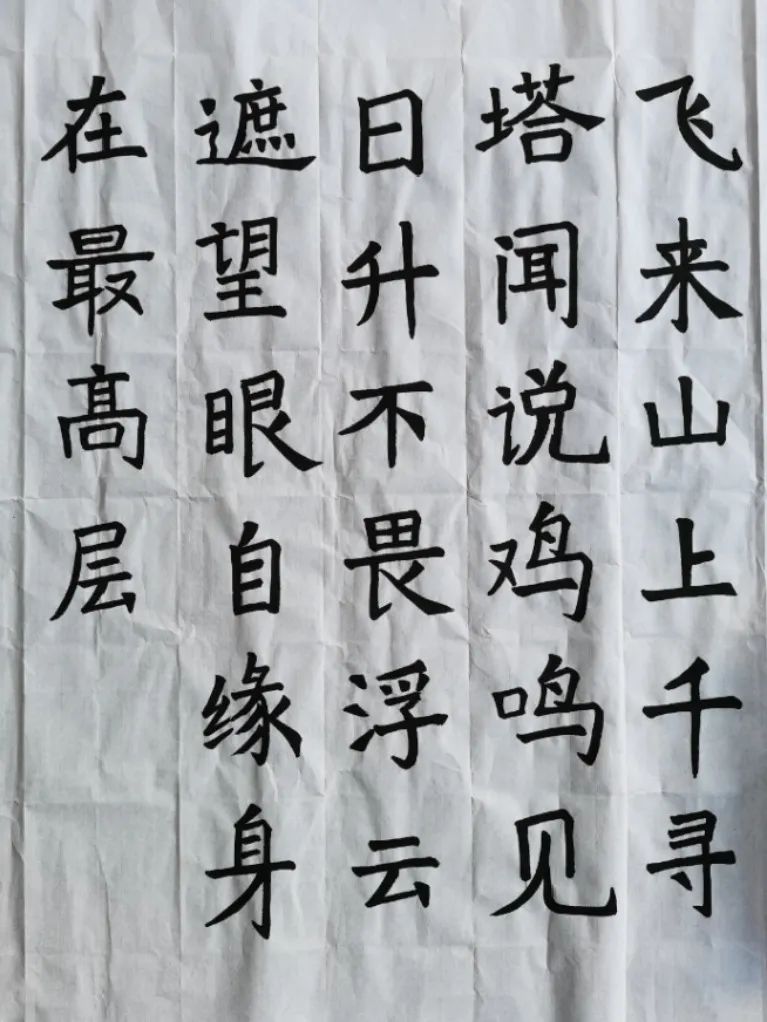 飞来山上千寻
塔闻说鸡鸣见
日升不畏浮云
遮望眼自缘身
在最高层